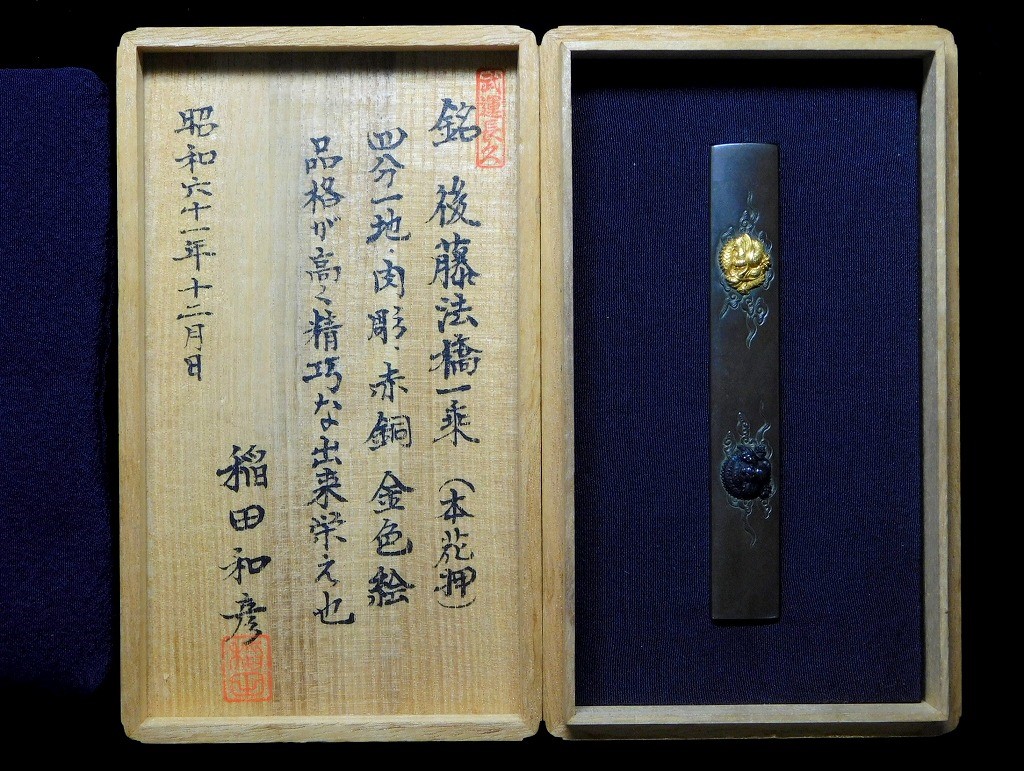 武運長久
銘 後藤法橋一乗 (本花押)
四分一地、肉彫、赤銅 金色絵
品格が高く精巧な出来栄え也
昭和六十一年十二月日
稲田和彦